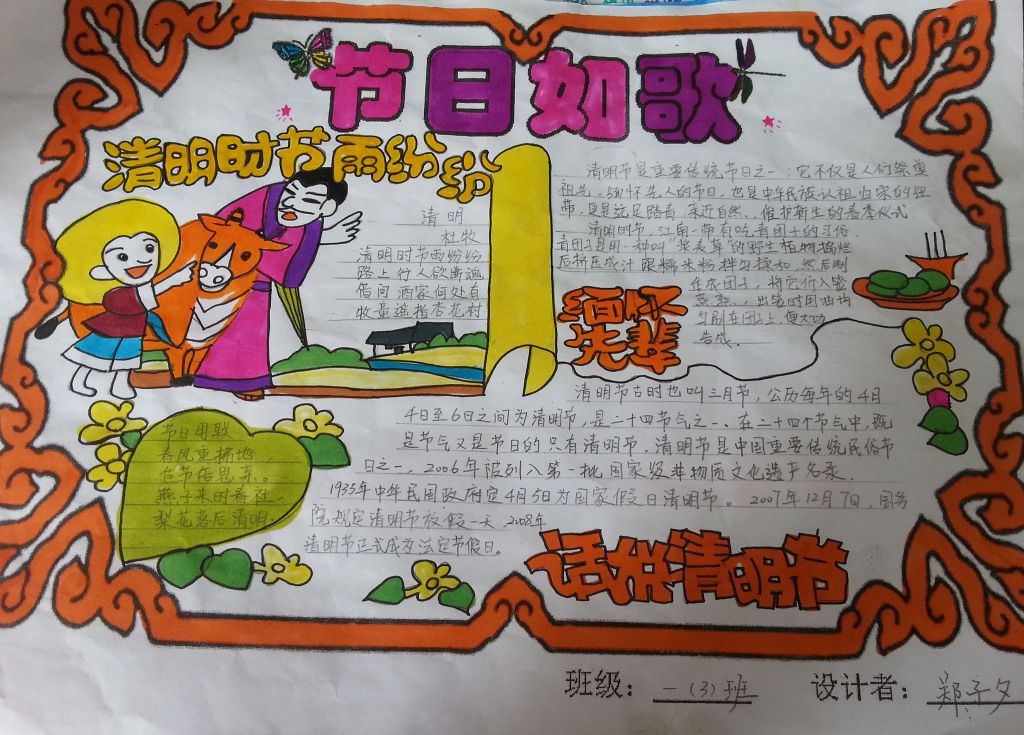 节日如歌
清明时节雨纷纷
清明
杜牧
清明时节雨纷纷
路上行人欲断魂
借问酒家何处有
牧童遥指杏花村
清明节是重要传统节日之一；它不仅是人们祭奠
祖先，缅怀先人的节日，也是中华民族认祖归宗的纽
带，更是远足踏青、亲近自然、催护新生的春季仪式
清明时节，江南一带有吃青团子的习俗.
青团子是用一种叫“浆麦草”的野生植物捣烂
后挤压成汁 跟糯米粉拌匀揉和，然后制
作成团子，将它们入笼
蒸熟，出笼时用油均
匀刷在团子上，便大功
告成.
缅怀
先辈
清明节古时也叫三月节，公历每年的4月
4日至6日之间为清明节，是二十四节气之一。在二十四个节气中，既
是节气又是节日的只有清明节，清明节是中国重要传统民俗节
日之一，2006年被列入第一批国家级非物质文化遗产名录.
1935年中华民国政府定4月5日为国家假日清明节。2007年12月7日，国务
院规定清明节放假一天，2008年
清明节正式成为法定节假日。
节日用联
春风重拂地，
佳节倍思亲。
燕子来时春社
梨花落后清明.
话说清明节
班级：一(3)班
设计者：郑子夕